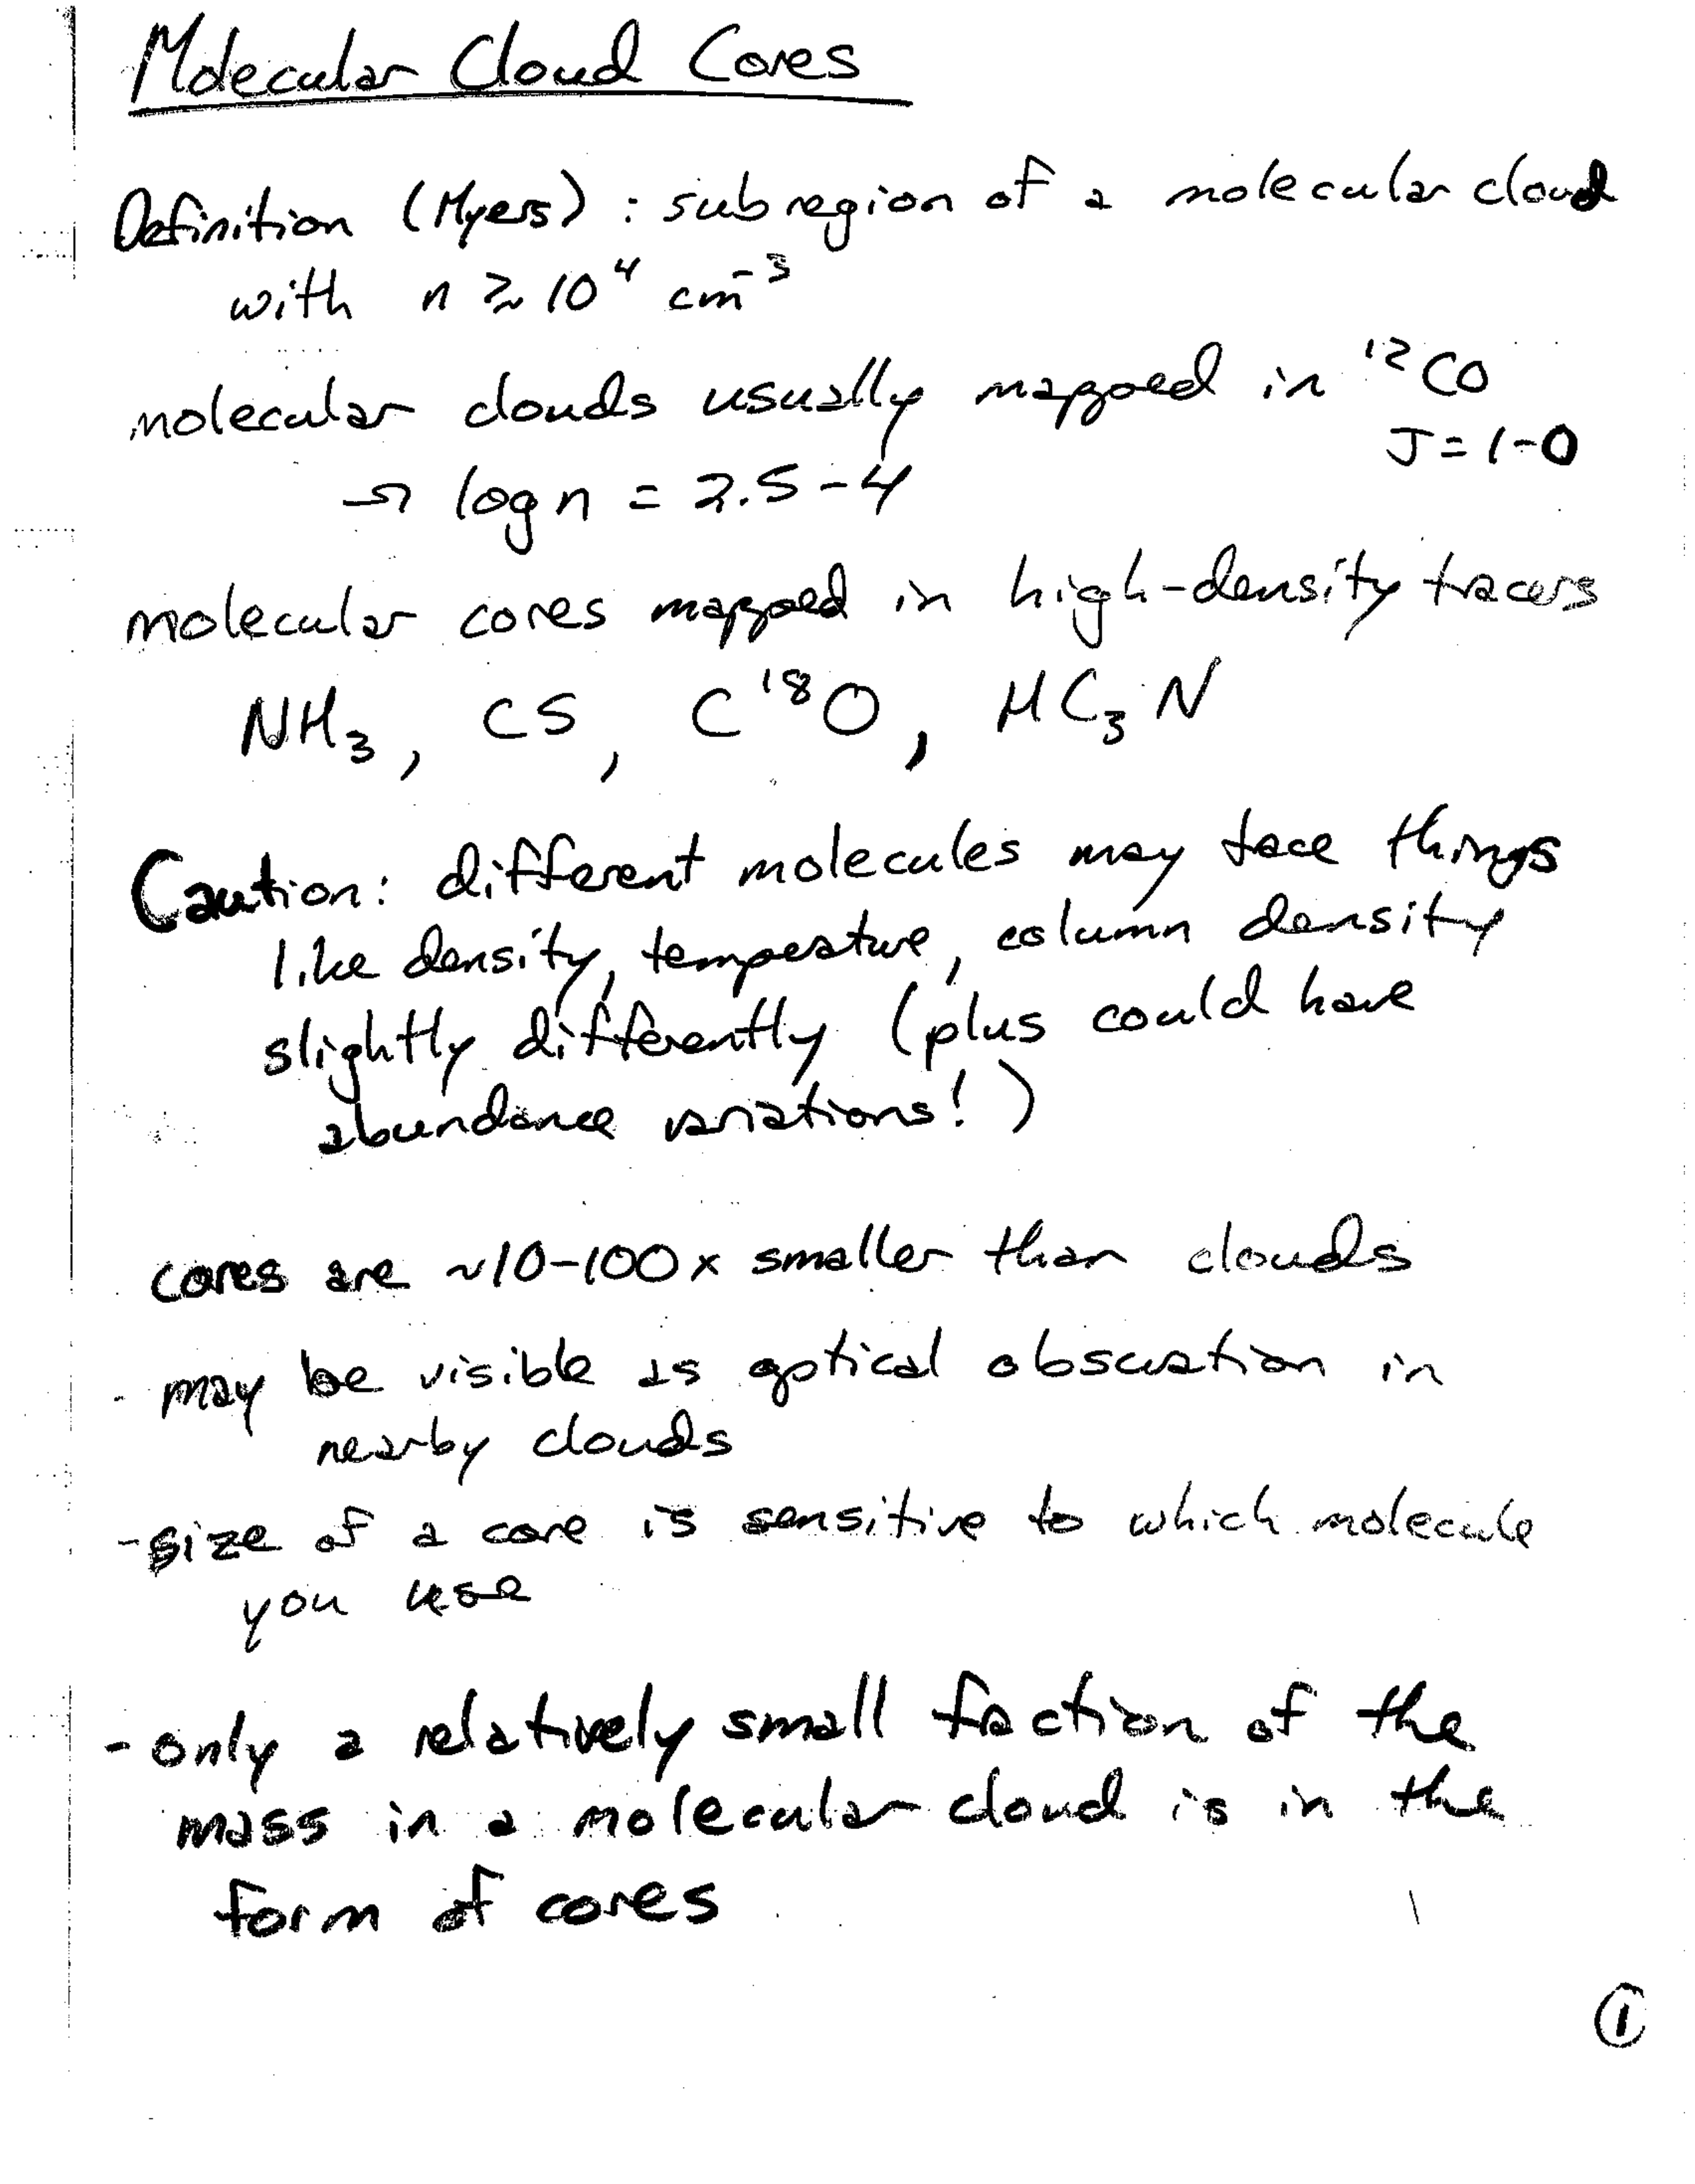 Molecular Cloud Cores
Definition (Myers) : subregion of a molecular cloud
with n ≳ 10⁴ cm⁻³
molecular clouds usually mapped in ¹²CO
J = 1-0
→ log n = 2.5-4
molecular cores mapped in high-density tracers
NH₃, CS, C¹⁸O, HC₃N
Caution: different molecules may trace things
like density, temperature, column density
slightly differently (plus could have
abundance variations!)
cores are ~10-100x smaller than clouds
- may be visible as optical obscuration in
nearby clouds
- size of a core is sensitive to which molecule
you use
- only a relatively small fraction of the
mass in a molecular cloud is in the
form of cores
①